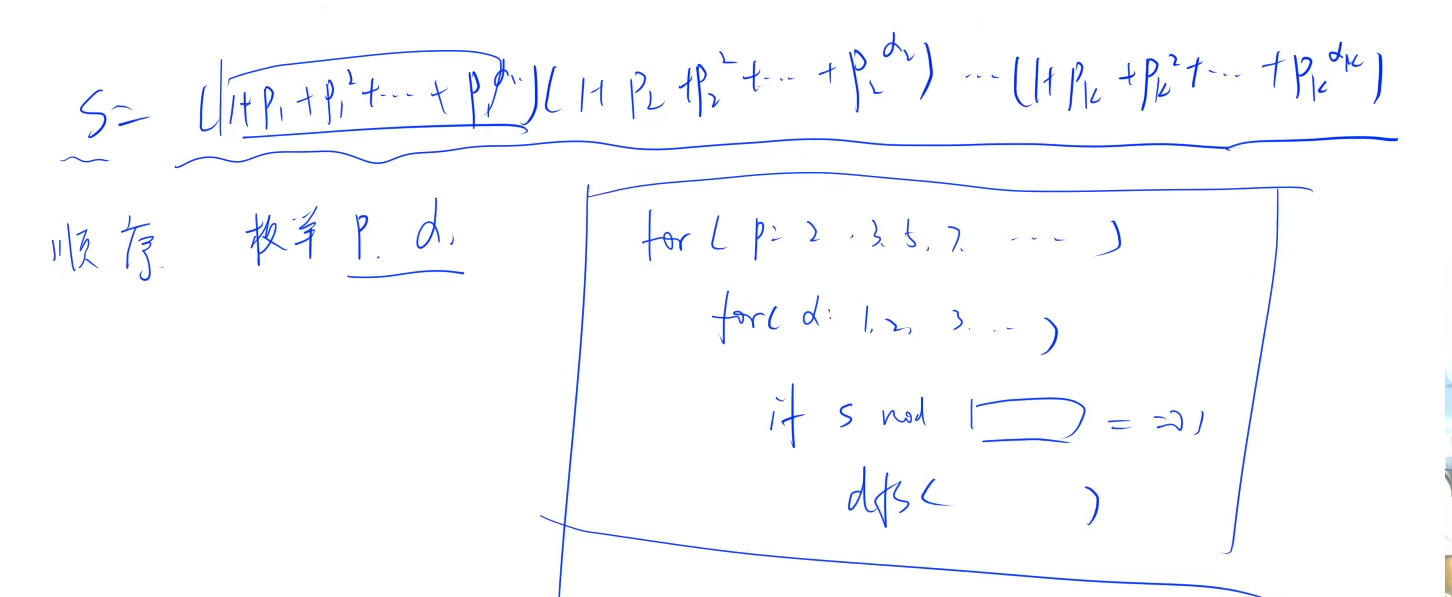 S= (1+P₁+P₁²+···+P₁^α₁)(1+P₂+P₂²+···+P₂^α₂) ··· (1+Pₖ+Pₖ²+···+Pₖ^αₖ)
顺序 枚举 P. α.
for ( P: 2. 3. 5. 7. ···· )
for( α: 1. 2. 3. ··· )
if S mod == 0)
dfs( )